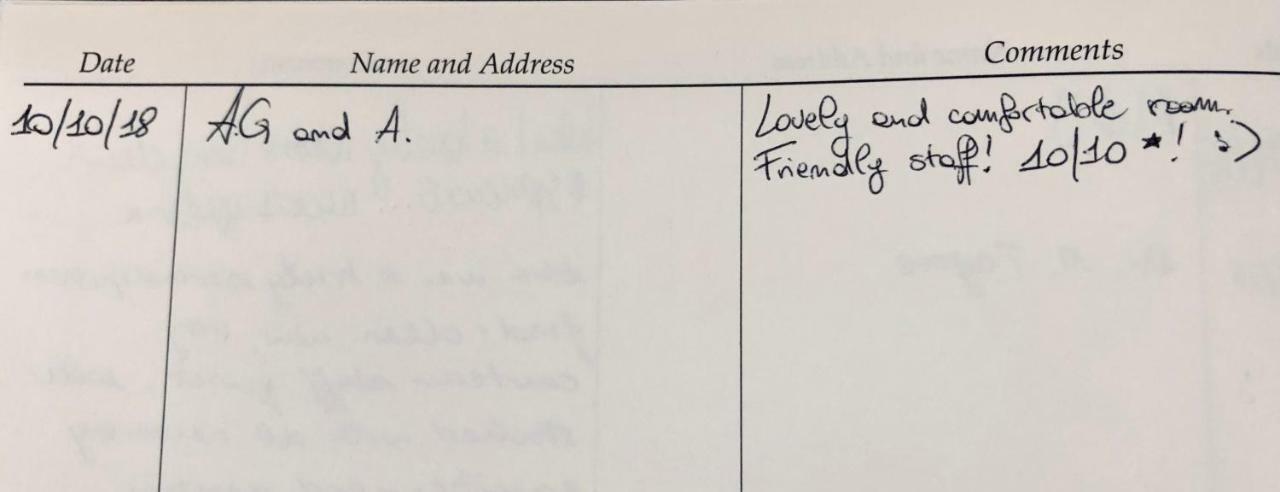 Date Name and Address Comments
10/10/18 A.G and A. Lovely and comfortable room.
Friendly staff! 10/10 ★! :)